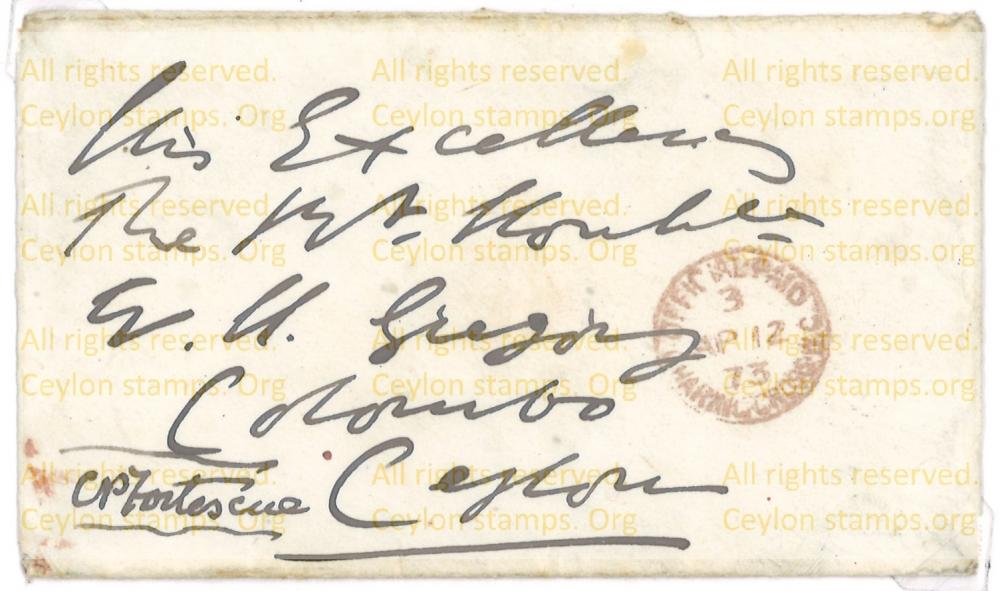 His Excellency
The Rt Honble
W. H. Gregory
Colombo
Ceylon
CP Fortescue
OFFICIAL PAID
3
AP 12
73
CHARING CROSS
All rights reserved. All rights reserved. All rights reserved.
Ceylon stamps. Org Ceylon stamps. Org Ceylon stamps.org
All rights reserved. All rights reserved. All rights reserved.
Ceylon stamps. Org Ceylon stamps. Org Ceylon stamps. Org
All rights reserved. All rights reserved. All rights reserved.
Ceylon stamps. Org Ceylon stamps. Org Ceylon stamps. Org
All rights reserved. All rights reserved. All rights reserved.
Ceylon stamps. Org Ceylon stamps. Org Ceylon stamps. Org